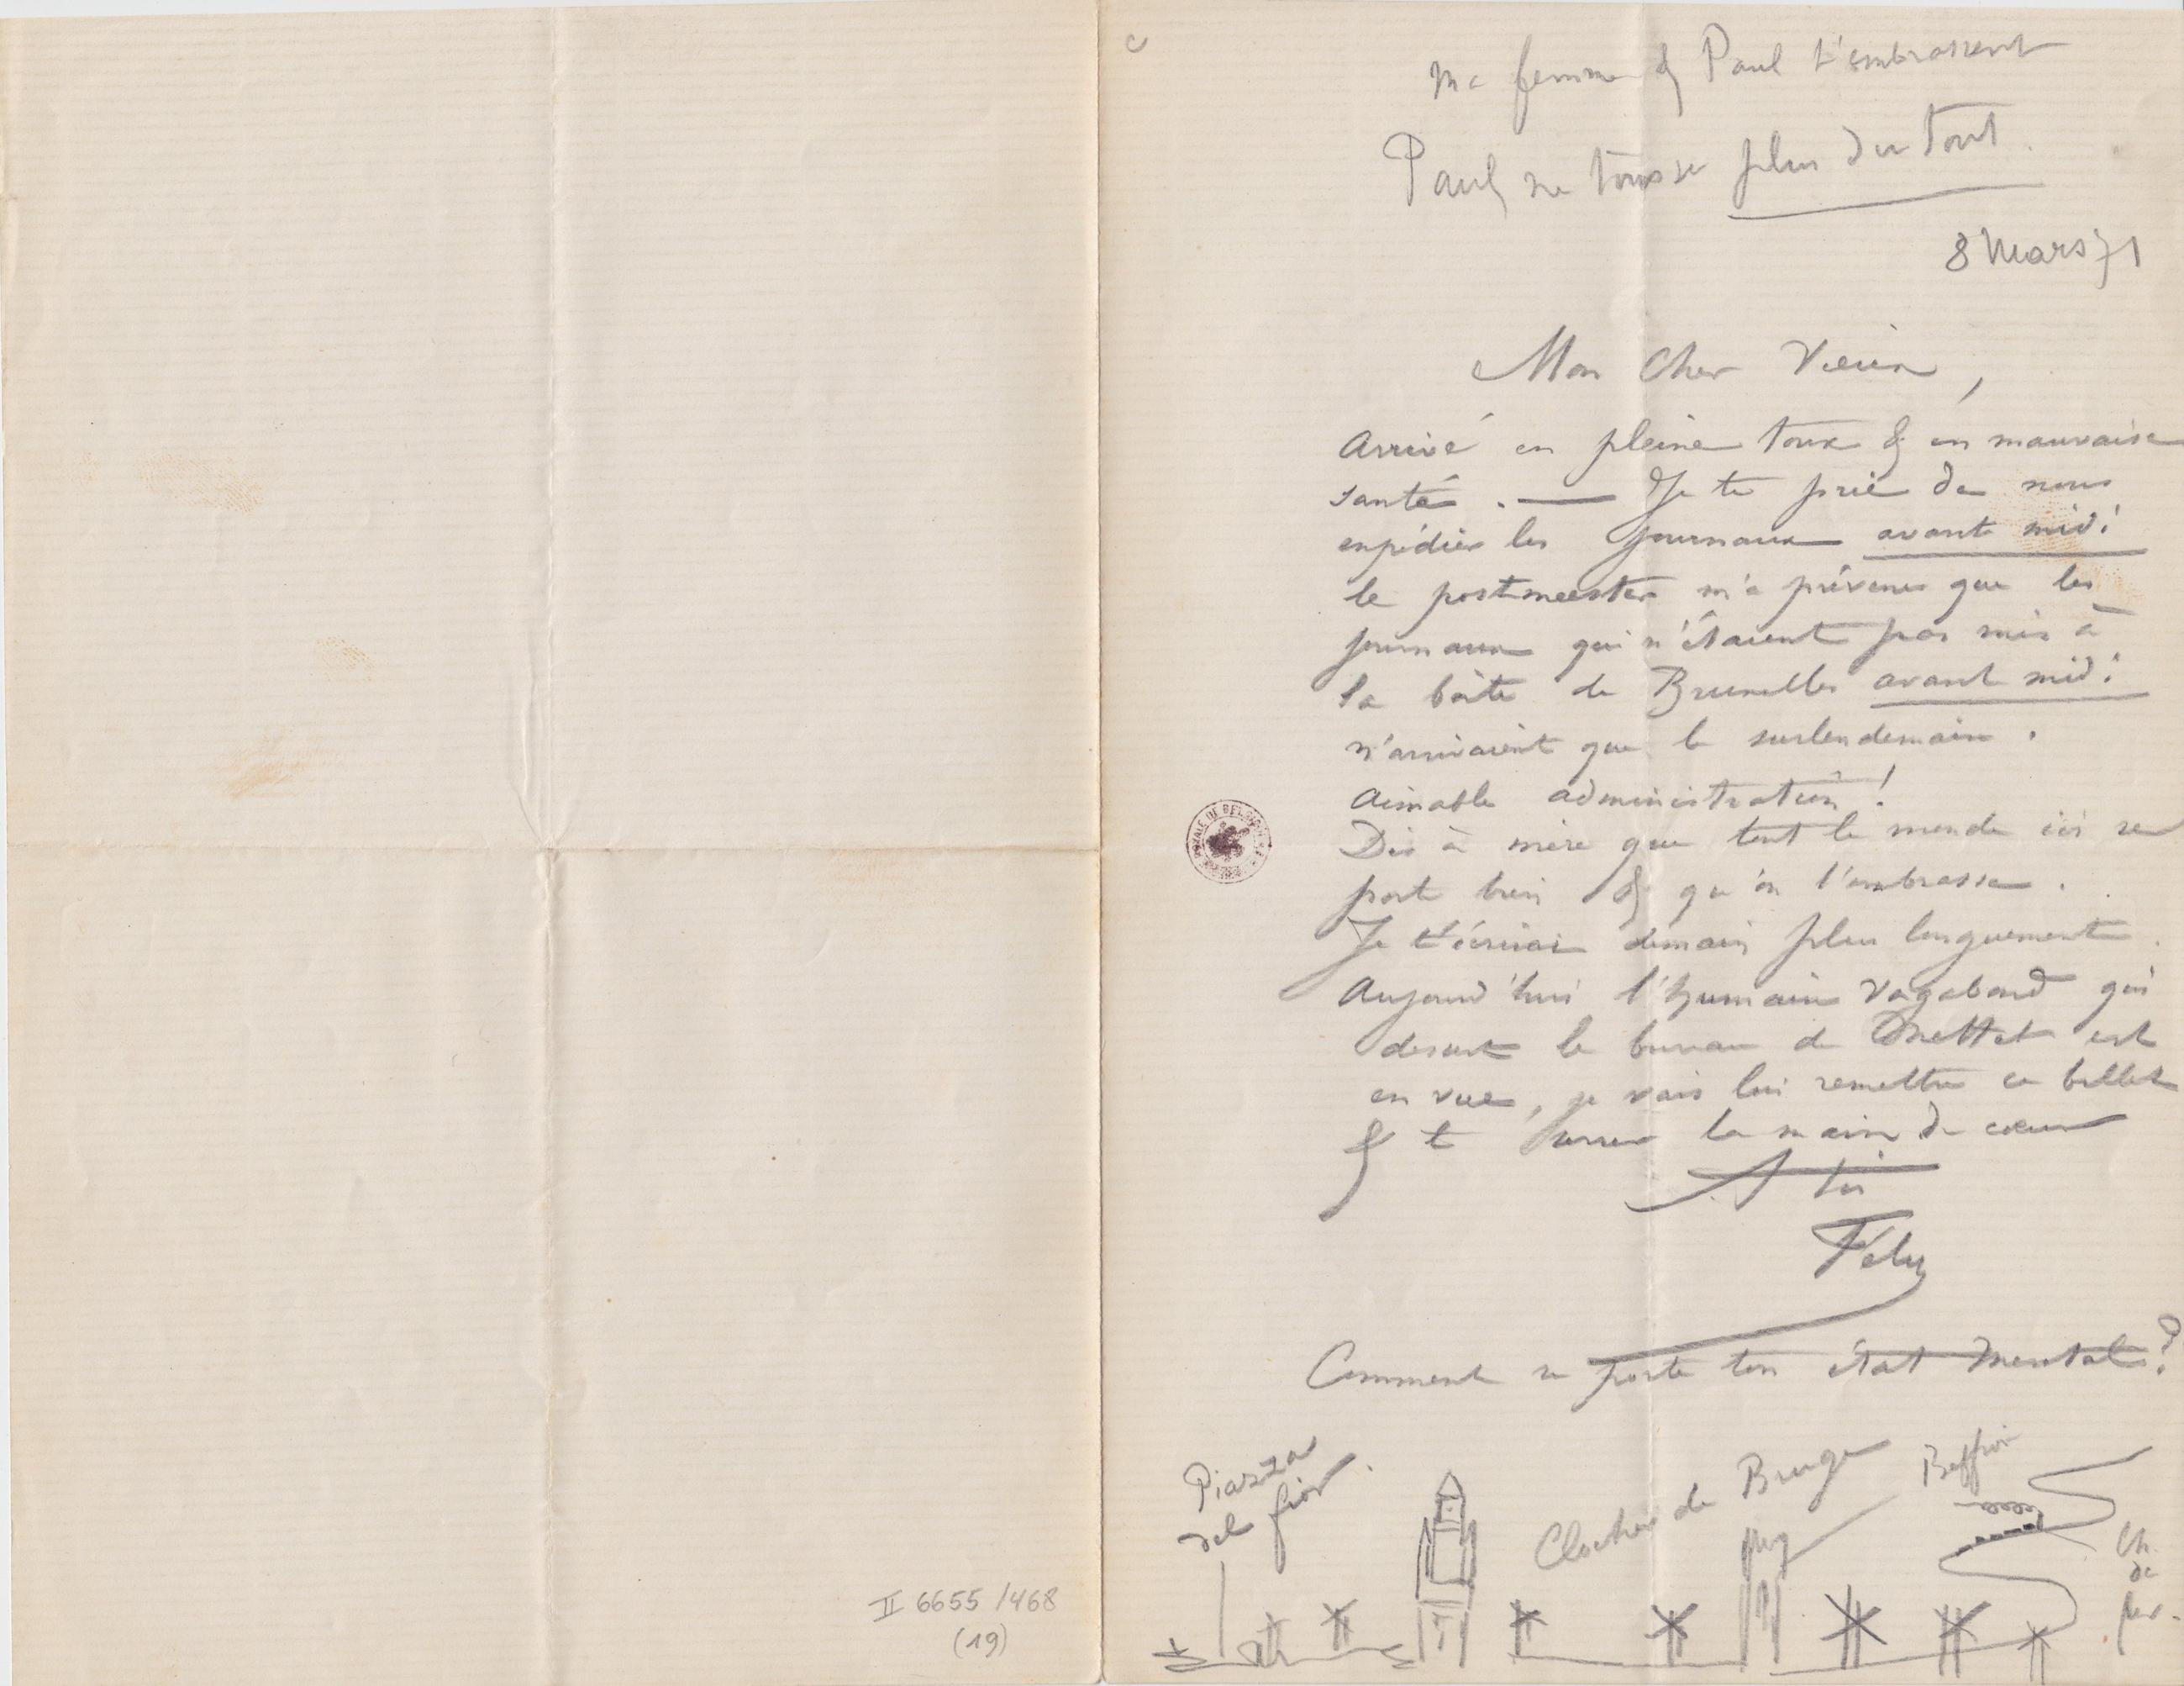 Ma femme & Paul t'embrassent
Paul ne tousse plus du tout.
8 Mars 71
Mon Cher Vieux,
Arrivé en pleine toux & en mauvaise
santé. — Je te prie de nous
expédier les journaux avant midi
le postmeester m'a prévenu que les
journaux qui n'étaient pas mis à
la boîte de Bruxelles avant midi
n'arrivaient que le surlendemain.
Aimable administration!
Dis à mère que tout le monde ici se
porte bien & qu'on l'embrasse.
Je t'écrirai demain plus longuement.
Aujourd'hui l'humain vagabond qui
dessert le bureau de Mettet est
en vue, je vais lui remettre ce billet
& te serrer la main de cœur
A toi
Fély
Comment se porte ton état mental?
Piazza
del fior.
Clocher de Bruge
Beffroi
Ch.
de
fer.
ROYALE DE BELGIQUE
II 6655 /468
(19)